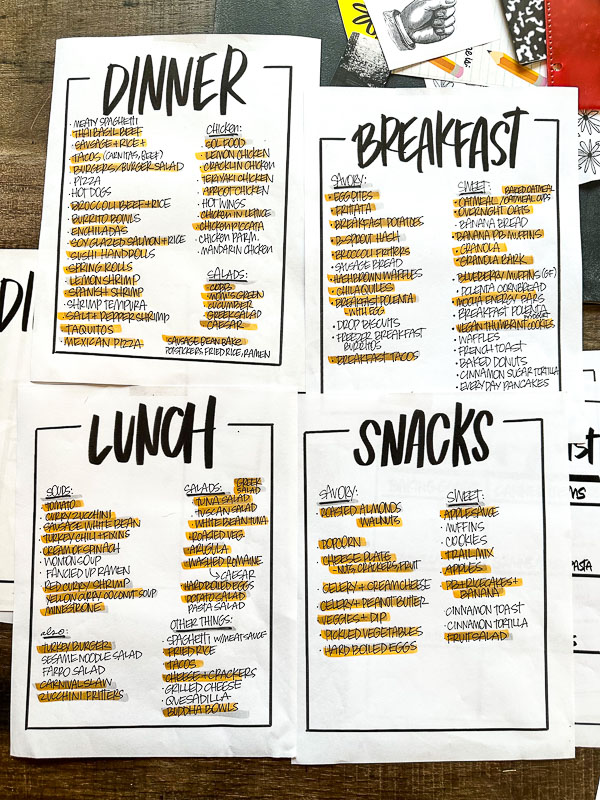 DINNER
MEATY SPAGHETTI
THAI BASIL BEEF
SAUSAGE + RICE +
TACOS (CARNITAS, BEEF)
BURGERS/BURGER SALAD
PIZZA
HOT DOGS
BROCCOLI BEEF + RICE
BURRITO BOWLS
ENCHILADAS
SOY GLAZED SALMON + RICE
SUSHI HANDROLLS
SPRING ROLLS
LEMON SHRIMP
SPANISH SHRIMP
SHRIMP TEMPURA
SALT + PEPPER SHRIMP
TAQUITOS
MEXICAN PIZZA
CHICKEN:
SOL FOOD
LEMON CHICKEN
CRACKLIN CHICKEN
TERIYAKI CHICKEN
APRICOT CHICKEN
HOT WINGS
CHICKEN IN LETTUCE
CHICKEN PICCATA
CHICKEN PARM.
MANDARIN CHICKEN
SALADS:
COBB
MOM'S GREEN
CUCUMBER
GREEK SALAD
CAESAR
SAUSAGE BEAN BAKE
POTSTICKERS, FRIED RICE, RAMEN
BREAKFAST
SAVORY:
EGG BITES
FRITTATA
BREAKFAST POTATOES
B-SPROUT HASH
BROCCOLI FRITTERS
SAUSAGE BREAD
HASHBROWN WAFFLES
CHILAQUILES
BREAKFAST POLENTA
WITH EGG
DROP BISCUITS
FREEZER BREAKFAST
BURRITOS
BREAKFAST TACOS
SWEET:
BAKED OATMEAL
OATMEAL / OATMEAL CUPS
OVERNIGHT OATS
BANANA BREAD
BANANA PB MUFFINS
GRANOLA
GRANOLA BARK
BLUEBERRY MUFFINS (GF)
POLENTA CORNBREAD
MOCHA ENERGY BARS
BREAKFAST POLENTA
VEGAN THUMBPRINT COOKIES
WAFFLES
FRENCH TOAST
BAKED DONUTS
CINNAMON SUGAR TORTILLA
EVERYDAY PANCAKES
LUNCH
SOUPS:
TOMATO
CURRY ZUCCHINI
SAUSAGE WHITE BEAN
TURKEY CHILI + FIXINS
CREAM OF SPINACH
WONTON SOUP
FANCIED UP RAMEN
RED CURRY SHRIMP
YELLOW CURRY COCONUT SOUP
MINESTRONE
also:
TURKEY BURGER
SESAME NOODLE SALAD
FARRO SALAD
CARNIVAL SLAW
ZUCCHINI FRITTERS
SALADS:
GREEK
SALAD
TUNA SALAD
TUSCAN SALAD
WHITE BEAN TUNA
ROASTED VEG.
ARUGULA
WASHED ROMAINE
CAESAR
HARD BOILED EGGS
POTATO SALAD
PASTA SALAD
OTHER THINGS:
SPAGHETTI W/MEAT SAUCE
FRIED RICE
TACOS
CHEESE + CRACKERS
GRILLED CHEESE
QUESADILLA
BUDDHA BOWLS
SNACKS
SAVORY:
ROASTED ALMONDS
WALNUTS
POPCORN
CHEESE PLATE
NUTS, CRACKERS, FRUIT
CELERY + CREAM CHEESE
CELERY + PEANUT BUTTER
VEGGIES + DIP
PICKLED VEGETABLES
HARD BOILED EGGS
SWEET:
APPLESAUCE
MUFFINS
COOKIES
TRAIL MIX
APPLES
PB + RICECAKES +
BANANA
CINNAMON TOAST
CINNAMON TORTILLA
FRUIT SALAD
DI
PASTA